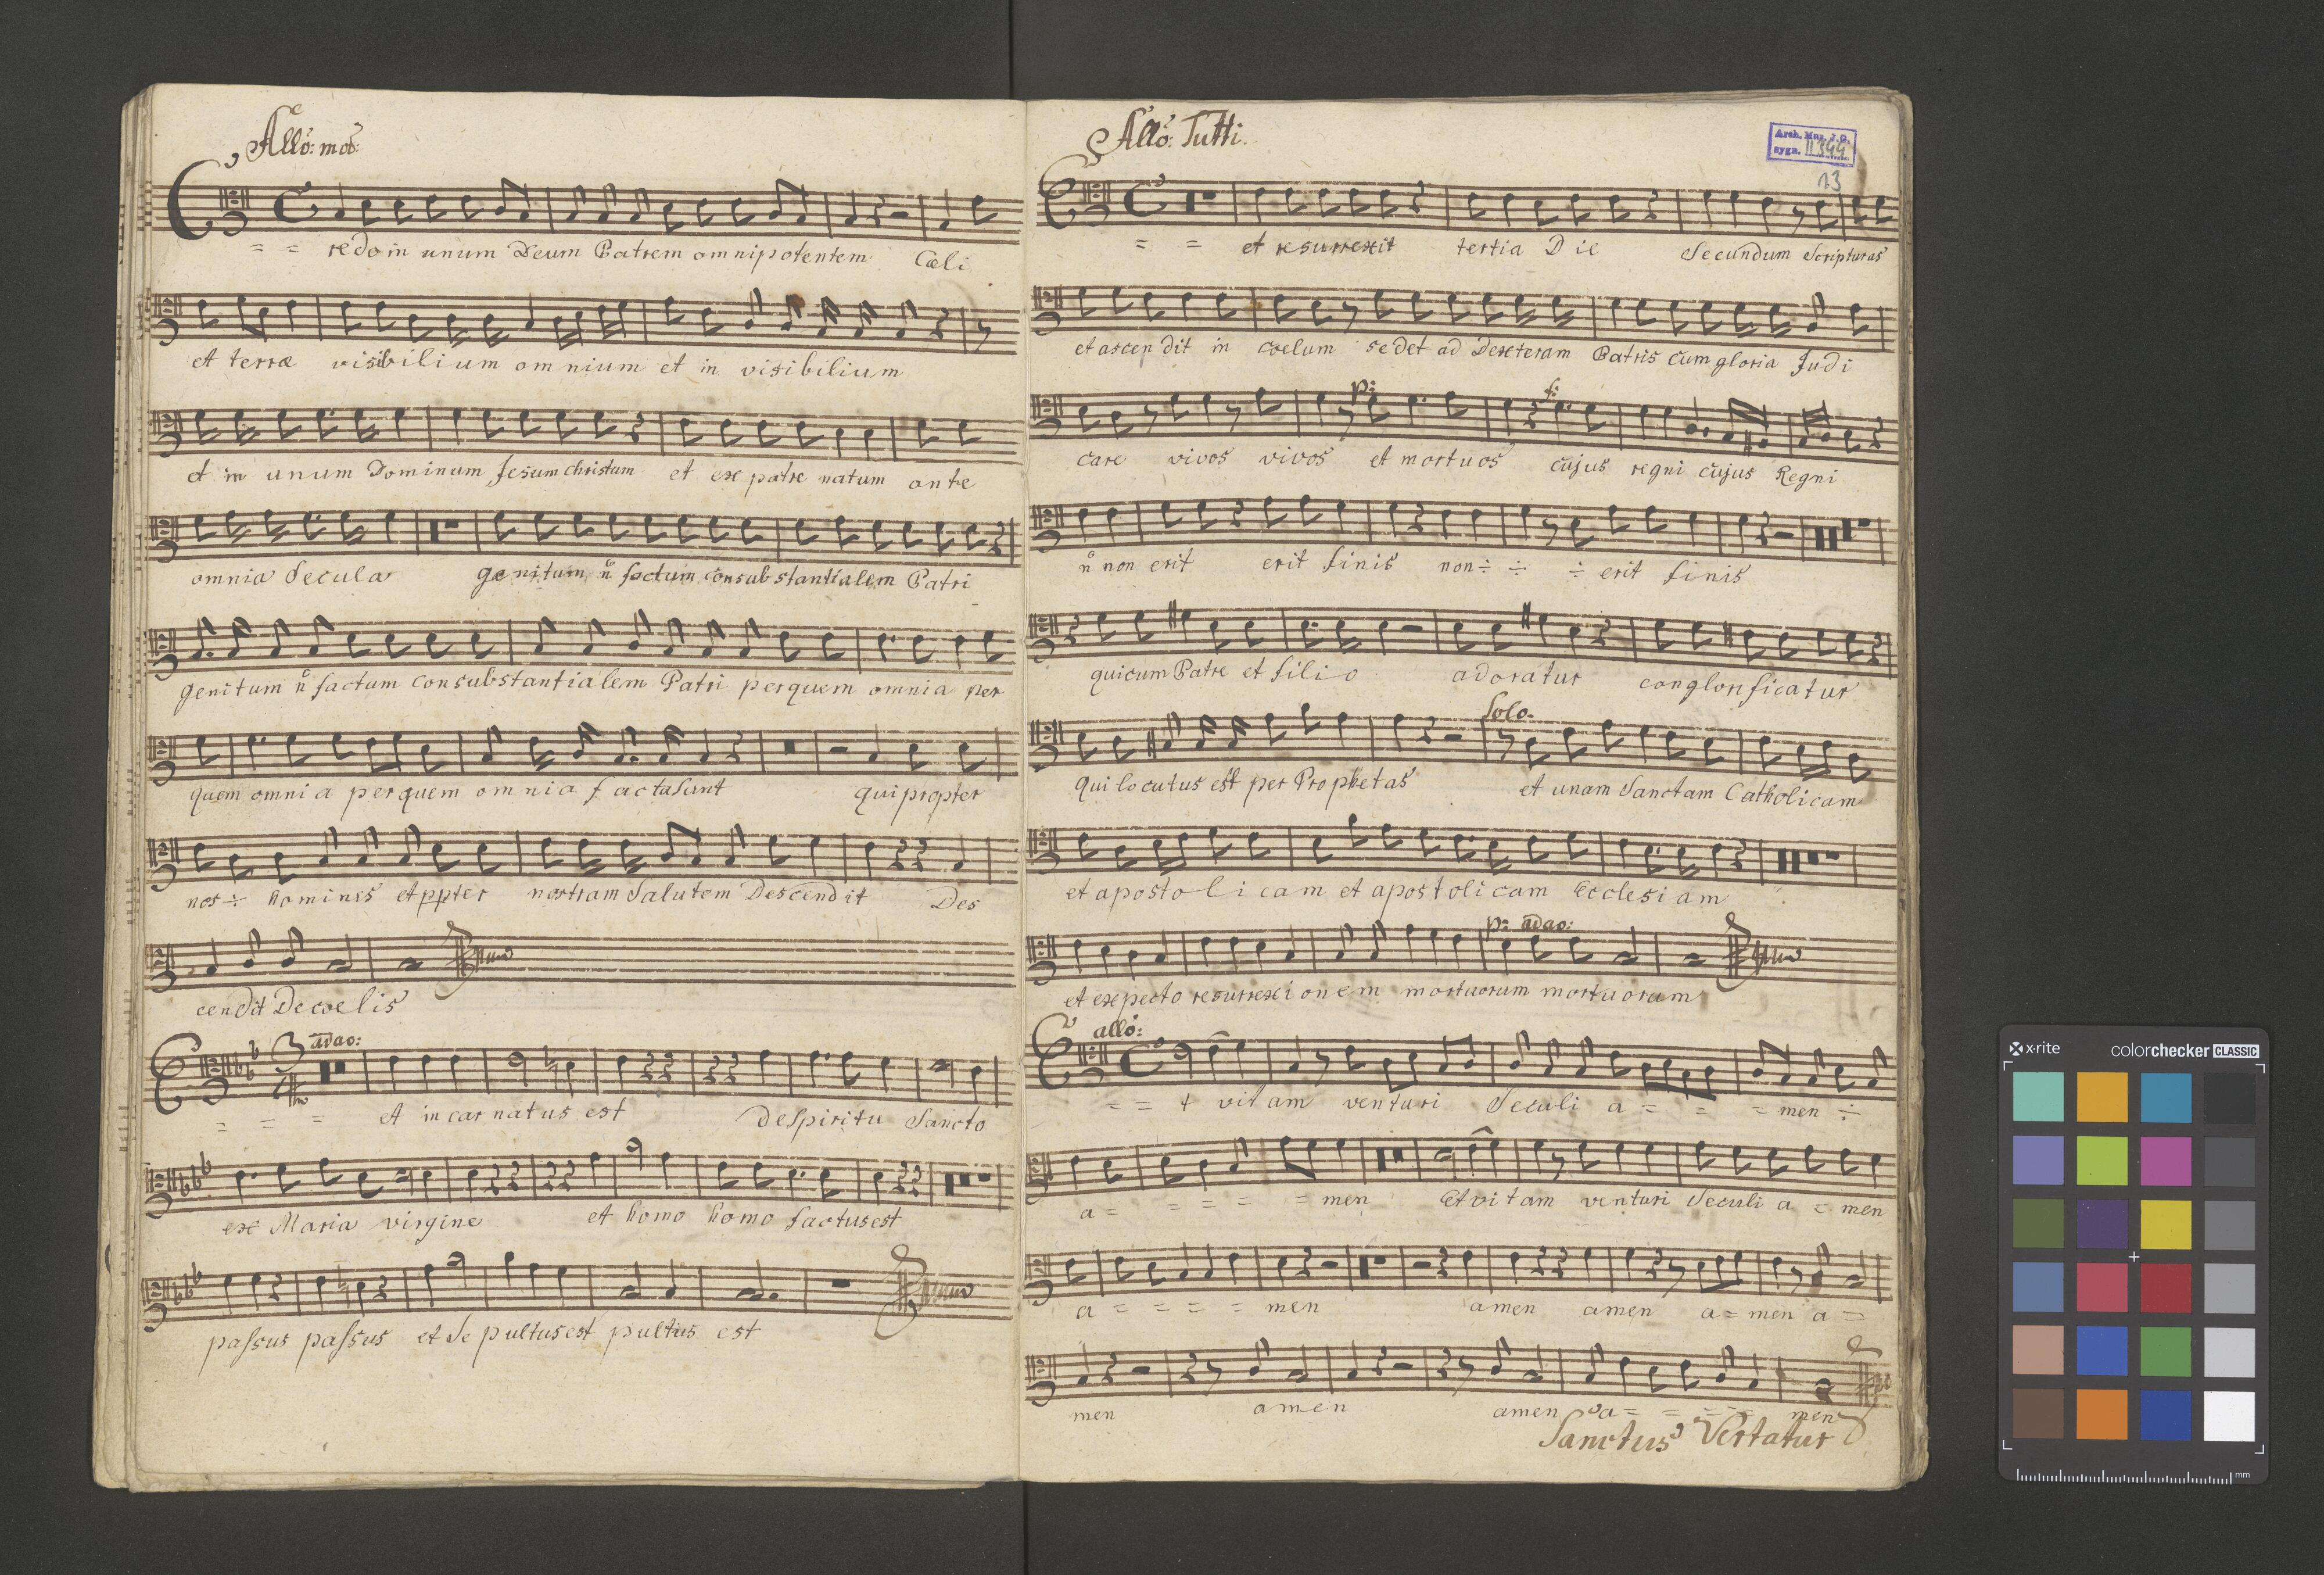 Allo: mod:
C = = redo in unum Deum Patrem omnipotentem Cœli
et terræ visibilium omnium et in visibilium
et in unum Dominum Jesum christum et ex patre natum ante
omnia Secula genitum n̊ factum consubstantialem Patri
genitum n̊ factum consubstantialem Patri perquem omnia per
quem omnia perquem omnia factasunt quipropter
nos ÷ homines et ppter nostram Salutem Descendit Des
cendit Decoelis
adao:
= = = et incarnatus est deSpiritu Sancto
ex Maria virgine et homo homo factusest
passus passus et Sepultusest pultus est
Allo: Tutti.
Arch. Muz. J.G.
sygn. II 344
13
= = et resurrexit tertia Die Secundum Scripturas
et ascendit in coelum sedet ad Dexteram Patris cum gloria Judi
p: f:
care vivos vivos et mortuos cujus regni cujus Regni
n̊ non erit erit finis non ÷ ÷ ÷ erit finis
quicum Patre et filio adoratur conglorificatur
Solo.
qui locutus est per Prophetas et unam Sanctam Catholicam
et apostolicam et apostolicam Ecclesiam
p: adao:
et expecto resurrexionem mortuorum mortuorum
allo:
E = = t vitam venturi Seculi a = = = men ÷
a = = = = = men Et vitam venturi Seculi a = men
a = = = = men amen amen a = men a =
men amen amen a = = = = men
Sanctus Vertatur
x·rite colorchecker CLASSIC
mm